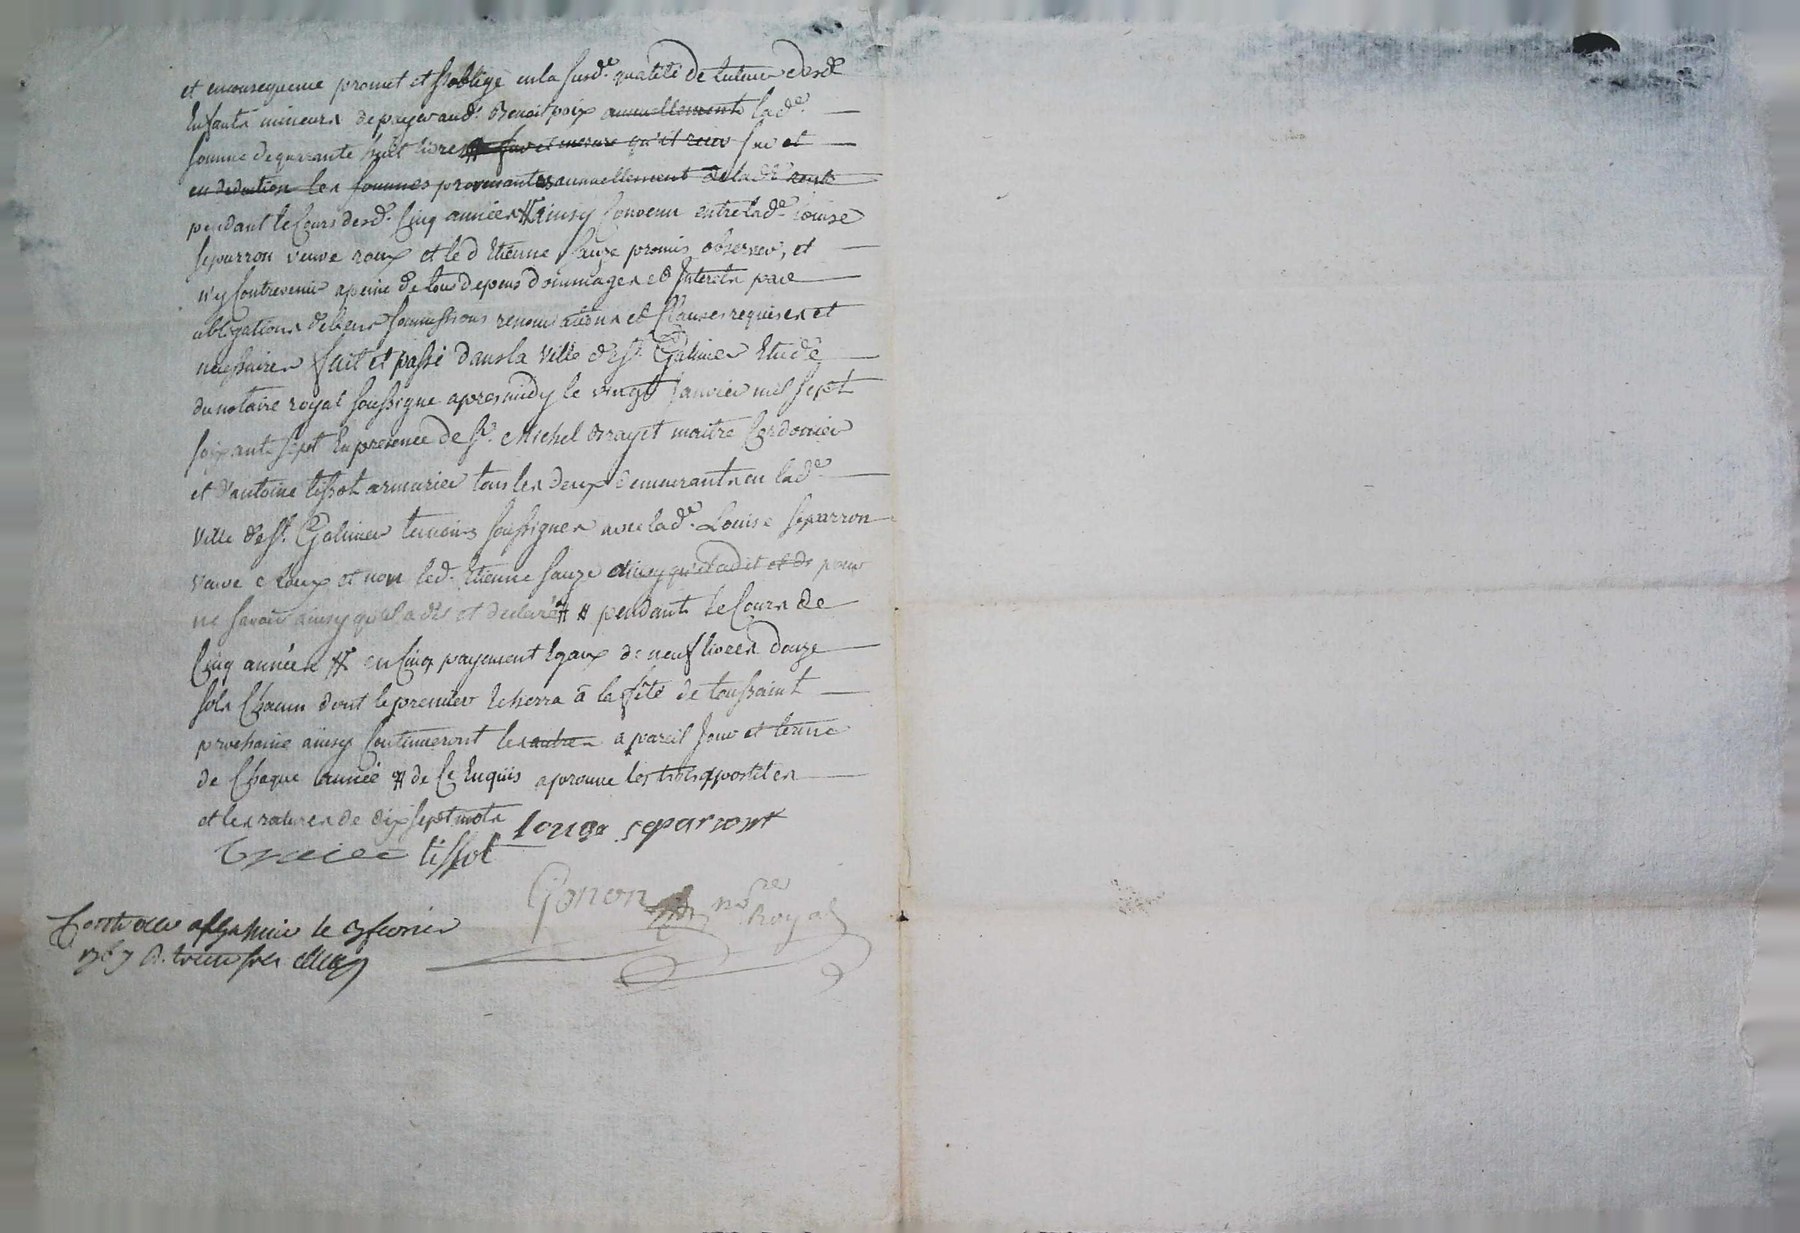 et en consequence promet et s'oblige en la susd.e qualité de tuteur desd.
Enfants mineurs de payer aud. Benoit poix annuellement lad.e
somme de quarante huit livres # sur et mesure qu'il recev sur et
en deduction les sommes provenantes annuellement de lad.e rente
pendant le Cours desd. Cinq années # ainsy Convenu entre lad.e Louise
separron veuve roux et led Etienne sauze promis observer, et
n'y Contrevenir a peine de tous depens dommages et Interets par
obligations de biens soumissions renonciations et Clauses requises et
necessaires fait et passé dans la ville de st. Galmier Etude
du notaire royal soussigné apres midy le vingt Janvier mil sept
soixante sept En presence de sr. Michel Brayet maitre Cordonnier
et d'antoine tissot armurier tous les deux demeurants en lad.e
ville de st. Galmier temoins soussignes avec lad.e Louise separron
veuve Roux et non led. Etienne sauze ainsy qu'il a dit et de pour
ne savoir ainsy qu'il a dit et declaré # # pendant le Cours de
Cinq années # en Cinq payement Egaux de neuf livres douze
sols Chacun dont le premier Echerra à la fête de toussaint
prochaine ainsy Continueront les autres a pareil Jour et terme
de Chaque année # de Ce Enquis aprouve les trois apostilles
et les ratures de dix sept mots
Louise separront
tissot
Gonon nre Royal
Controllé a st Galmier le fevrier
1767 R. treize sols